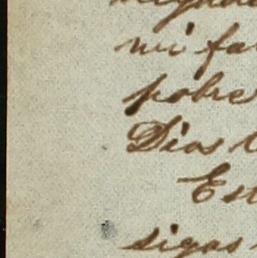 mi fa
pobre
Dios
Est
sigas